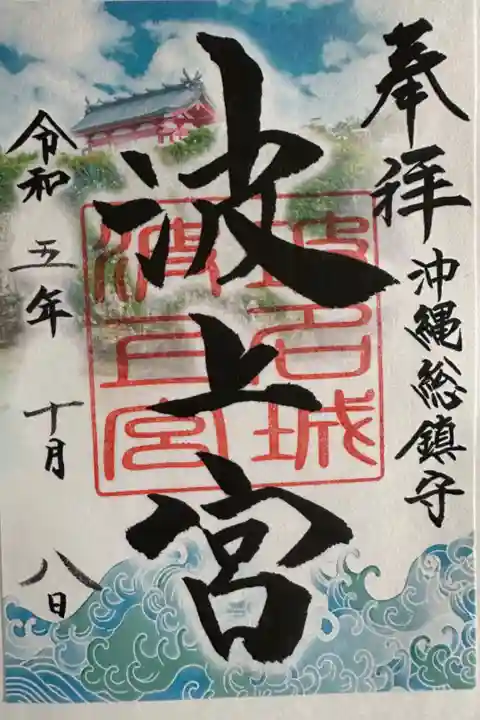 奉拝
沖縄総鎮守
波上宮
坡名城
波上宮
令和五年十月八日